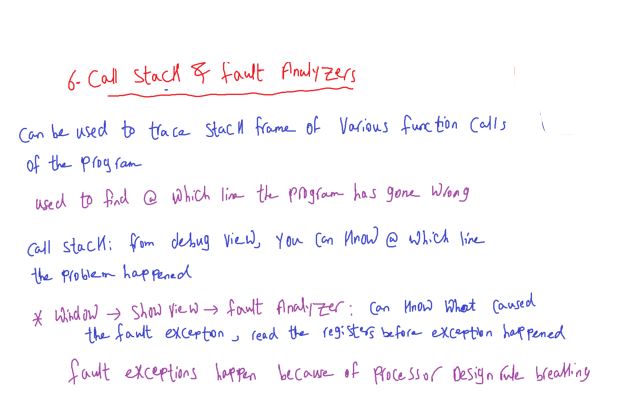 6- Call Stack & fault Analyzers
Can be used to trace stack frame of various function calls
of the program
used to find @ which line the program has gone wrong
Call stack: from debug view, you can know @ which line
the problem happened
* Window → Show view → fault Analyzer: can know what caused
the fault excepton, read the registers before exception happened
fault exceptions happen because of processor Design rule breaking